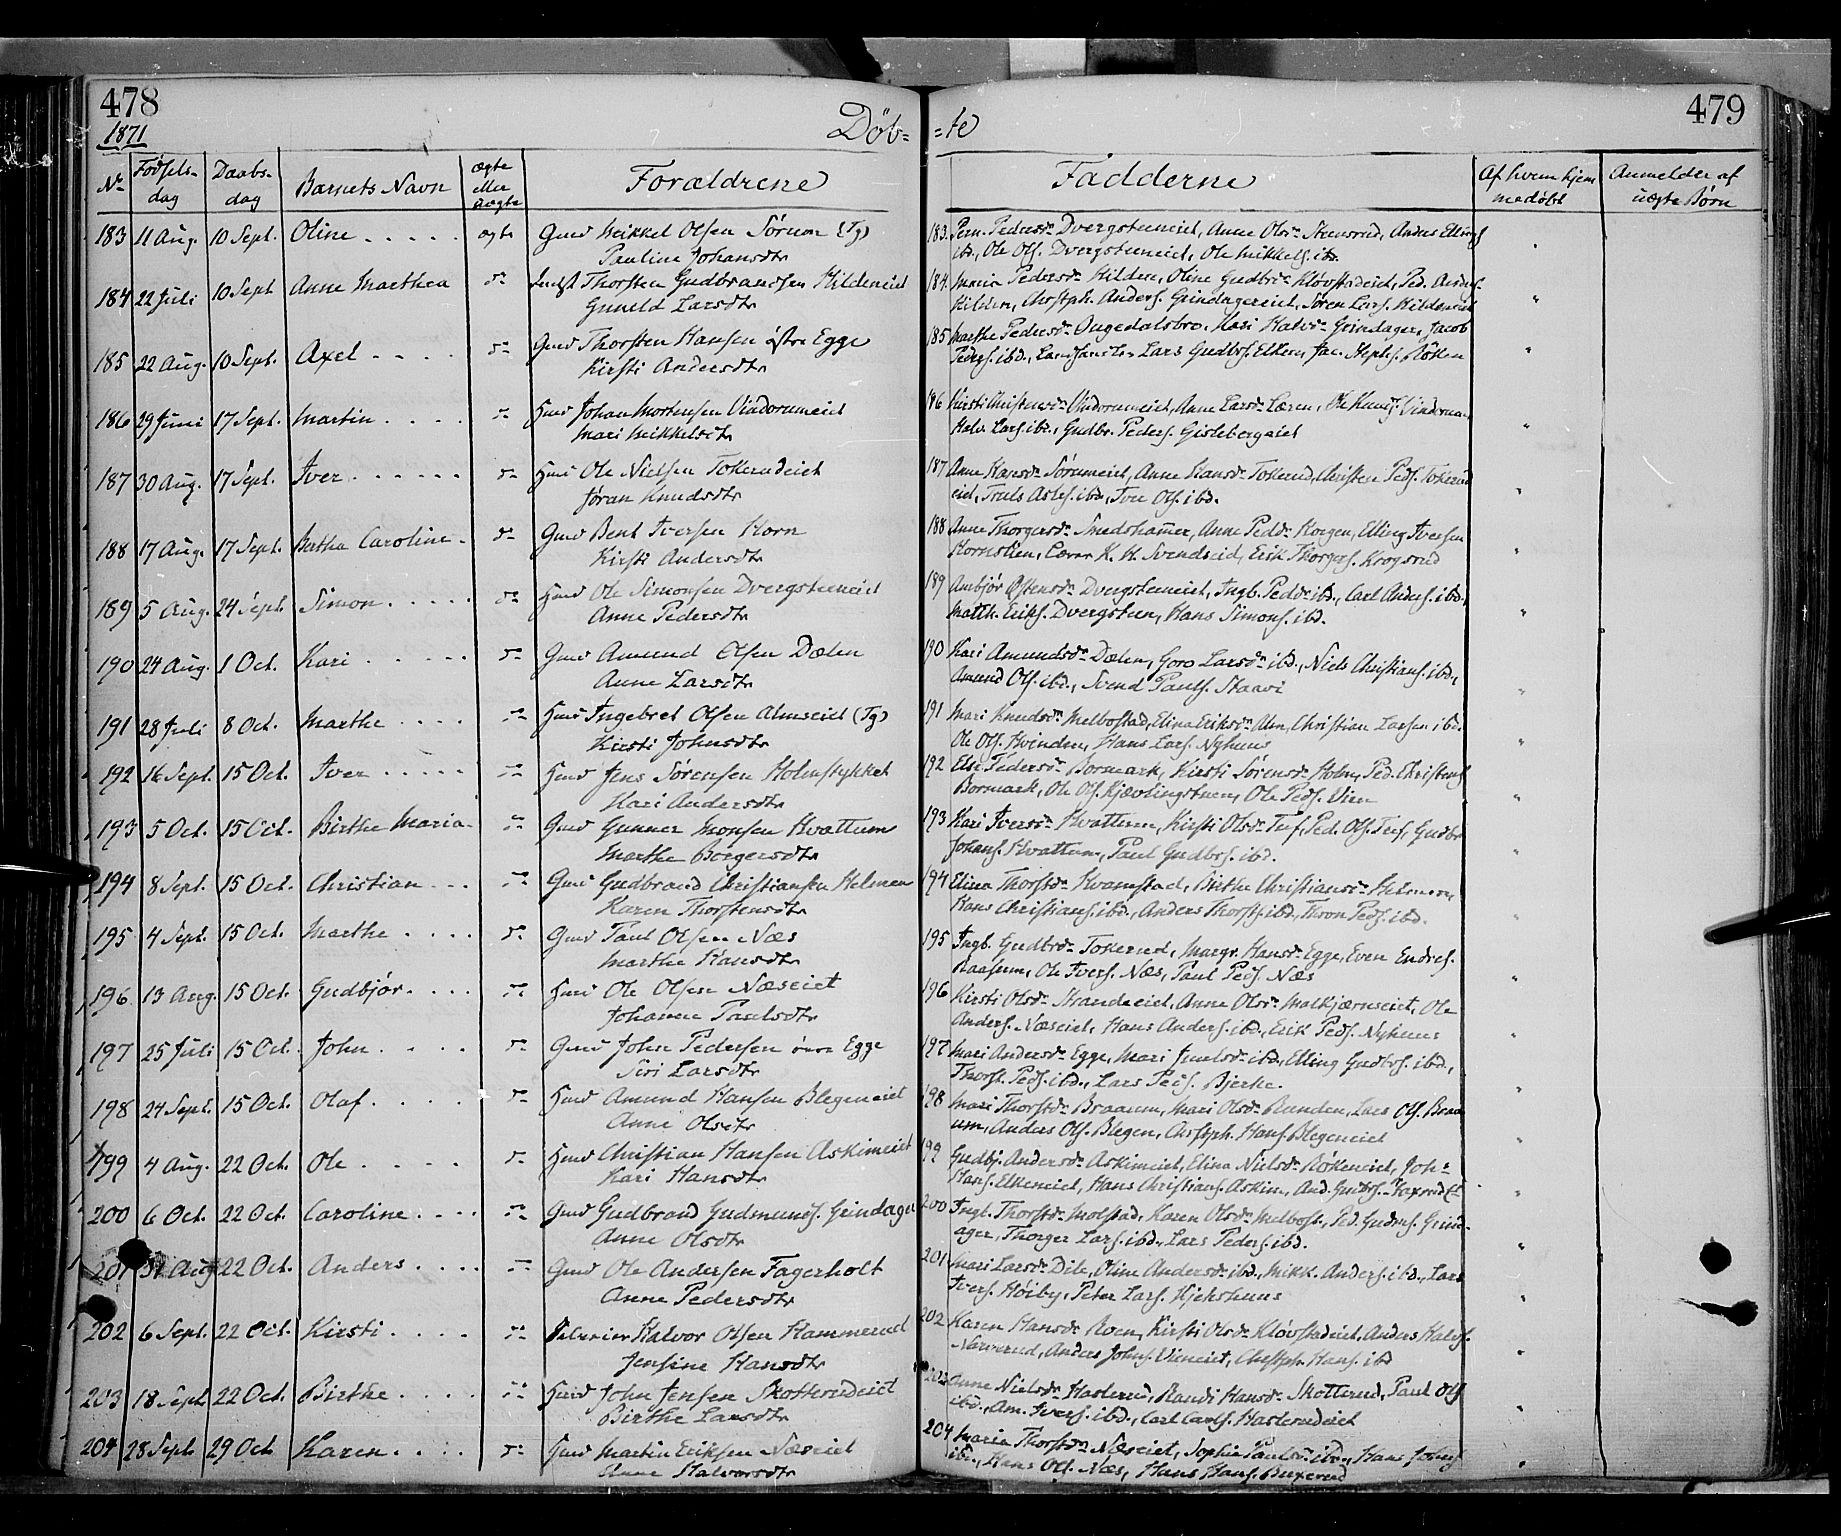 478
1871
Døb=
No
Fødsels-
dag
Daabs-
dag
Barnets Navn
ægte
eller
uægte
Forældrene
183 11 Aug. 10 Sept. Oline ægte Gmd Mikkel Olsen Sørum (Tg)
Pauline Johansdtr
184 22 Juli 10 Sept Anne Marthea do Thorsten Gudbrandsen Hildeneiet
Gunild Larsdtr
185 22 Aug. 10 Sept. Axel do Gmd Thorsten Hansen østre Egge
Kirsti Andersdtr
186 29 Juni 17 Sept. Martin do Hmd Johan Mortensen Vindorumeiet
Mari Mikkelsdtr
187 30 Aug. 17 Sept. Iver do Hmd Ole Nielsen Tokerudeiet
Jøran Knudsdtr
188 17 Aug. 17 Sept. Bertha Caroline do Gmd Bent Iversen Horn
Kirsti Andersdtr
189 5 Aug. 24 Sept. Simon do Hmd Ole Simonsen Dvergsteneiet
Anne Pedersdtr
190 24 Aug. 1 Oct. Kari do Gmd Amund Olsen Dælen
Anne Larsdtr
191 28 Juli 8 Oct. Marthe do Hmd Ingebret Olsen Almseiet (Tg)
Kirsti Johnsdtr
192 16 Sept. 15 Oct. Iver do Hmd Jens Sørensen Holmstykket
Kari Andersdtr
193 5 Oct. 15 Oct. Birthe Maria do Gmd Gunner Monsen Hvattum
Marthe Borgersdtr
194 8 Sept. 15 Oct. Christian do Gmd Gudbrand Christiansen Helmen
Karen Thorstensdtr
195 4 Sept. 15 Oct. Marthe do Gmd Paul Olsen Næs
Marthe Hansdtr
196 13 Aug. 15 Oct. Gudbjør do Hmd Ole Olsen Næseiet
Johanne Paulsdtr
197 25 Juli 15 Oct. John do Gmd John Pedersen øvre Egge
Siri Larsdtr
198 24 Sept. 15 Oct. Olaf do Hmd Amund Hansen Blegeneiet
Anne Olsdtr
199 4 Aug. 22 Oct. Ole do Hmd Christian Hansen Askimeiet
Kari Hansdtr
200 6 Oct. 22 Oct. Caroline do Gmd Gudbrand Gudmunds. Grindager
Anne Olsdtr
201 31 Aug 22 Oct. Anders do Gmd Ole Andersen Fagerholt
Anne Pedersdtr
202 6 Sept. 22 Oct. Kirsti do Halvor Olsen Hammerud
Jensine Hansdtr
203 18 Sept 22 Oct. Birthe do Hmd John Jensen Skotterudeiet
Birthe Larsdtr
204 28 Sept 29 Oct Karen do Hmd Martin Eriksen Næseiet
Anne Halvorsdtr
479
=te
Fadderne
Af hvem hjem
medøbt
Anmelder af
uægte Børn
183. Pern. Pedersdr Dvergsteneiet, Anne Olsdr Stensrud, Anders Ellings
ibd., Ole Ols. Dvergsteneiet, Ole Mikkels. ibd.
184. Maria Pedersdr Hilden, Oline Gudbrdr Kløvstadeiet, Ped. Anders.
Hilden, Chrstph. Anders. Grindagereiet, Søren Lars. Hildeneiet
185 Marthe Pedersdr Ongedalsbro, Kari Halvdr Grindager, Jacob
Peders. ibd., Lars Gudbrs. Elken, Jac. Stephs. Røken
186 Kirsti Christensdr Vindorumeiet, Anne Larsdr Læren, Ole Vindorum
Halv. Lars. ibd., Gudbr. Peders. Gislebergeiet
187 Anne Larsdr Sørumeiet, Anne Hansdr Tokerud, Christen Peds. Tokerud
eiet, Truls Asles. ibd., Iver Ols. ibd.
188 Anne Thorgersdr Smedshammer, Anne Peddr Horgen, Elling Iversen
Hornslien, Lærer K. H. Svendseid, Erik Thorgers. Krogsrud
189 Ambjør Østensdr Dvergsteneiet, Ingb. Peddr ibd., Carl Anders. ibd.,
Matth. Eriks. Dvergsten, Hans Simons. ibd.
190 Kari Amundsdr Dælen, Goro Larsdr ibd., Niels Christians. ibd.,
Amund Ols. ibd., Svend Pauls. Staavi
191 Mari Knudsdr Melbostad, Elina Eriksdr Alm, Christian Larsen ibd.
Ole Ols. Hvinden, Hans Lars. Nyhuus
192 Else Pedersdr Bormark, Kirsti Sørensdr Holm, Ped. Christens.
Bormark, Ole Ols. Kjævlingstuen, Ole Peds. Vien
193 Kari Iversdr Hvattum, Kirsti Olsdr Tuf, Ped. Ols. Tuf, Gudbr.
Johans. Hvattum, Paul Gudbrs. ibd.
194 Elina Thorstdr Hvamstad, Birthe Christiansdr Helmen,
Hans Christians. ibd., Anders Thorsts. ibd., Thron Peds. ibd.
195 Ingb. Gudbrdr Tokerud, Margr. Hansdr Egge, Even Endres.
Raasum, Ole Ivers. Næs, Paul Peds. Næs
196 Kirsti Olsdr Strandeeiet, Anne Olsdr Molkjærneiet, Ole
Anders. Næseiet, Hans Anders. ibd., Erik Peds. Nyhuus
197 Mari Andersdr Egge, Mari ibd., Elling Gudbrs. ibd.,
Thorst. Peds. ibd., Lars Peds. Bjerke.
198 Mari Thorstdr Braaum, Mari Olsdr Runden, Lars Ols. Braa
um, Anders Ols. Blegen, Chrstph. Hans. Blegeneiet
199 Gudbj. Andersdr Askimeiet, Elina Nielsdr Røkeneiet, Joh.
Hans. Elkeneiet, Hans Christians. Askim, And. Gudbrs.
200 Ingb. Thorstdr Molstad, Karen Olsdr Melbost., Ped. Gudms. Grind-
ager, Thorger Lars. ibd., Lars Peders. ibd.
201 Mari Larsdr Dile, Oline Andersdr ibd., Mikk. Anders. ibd., Lars
Ivers. Høiby, Peter Lars. Kjekshuus
202 Karen Hansdr Roen, Kirsti Olsdr Kløvstadeiet, Anders Halvs.
Narverud, Anders Johns. Vieneiet, Chrstph. Hans. ibd
203 Anne Nielsdr Haslerud, Randi Hansdr Skotterud, Paul Ols.
ibd., Am. Ivers. ibd., Carl Carls. Haslerudeiet
204 Maria Thorstdr Næseiet, Sophia Paulsdr ibd., Hans Johns.
ibd., Hans Ols. Næs, Hans Hans. Buxerud